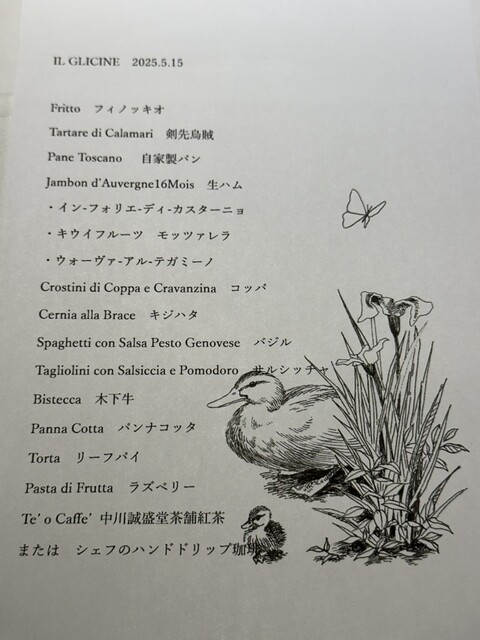 IL GLICINE 2025.5.15
Fritto フィノッキオ
Tartare di Calamari 剣先烏賊
Pane Toscano 自家製パン
Jambon d'Auvergne16Mois 生ハム
・イン-フォリエ-ディ-カスターニョ
・キウイフルーツ モッツァレラ
・ウォーヴァ-アル-テガミーノ
Crostini di Coppa e Cravanzina コッパ
Cernia alla Brace キジハタ
Spaghetti con Salsa Pesto Genovese バジル
Tagliolini con Salsiccia e Pomodoro サルシッチャ
Bistecca 木下牛
Panna Cotta パンナコッタ
Torta リーフパイ
Pasta di Frutta ラズベリー
Te' o Caffe' 中川誠盛堂茶舗紅茶
または シェフのハンドドリップ珈琲